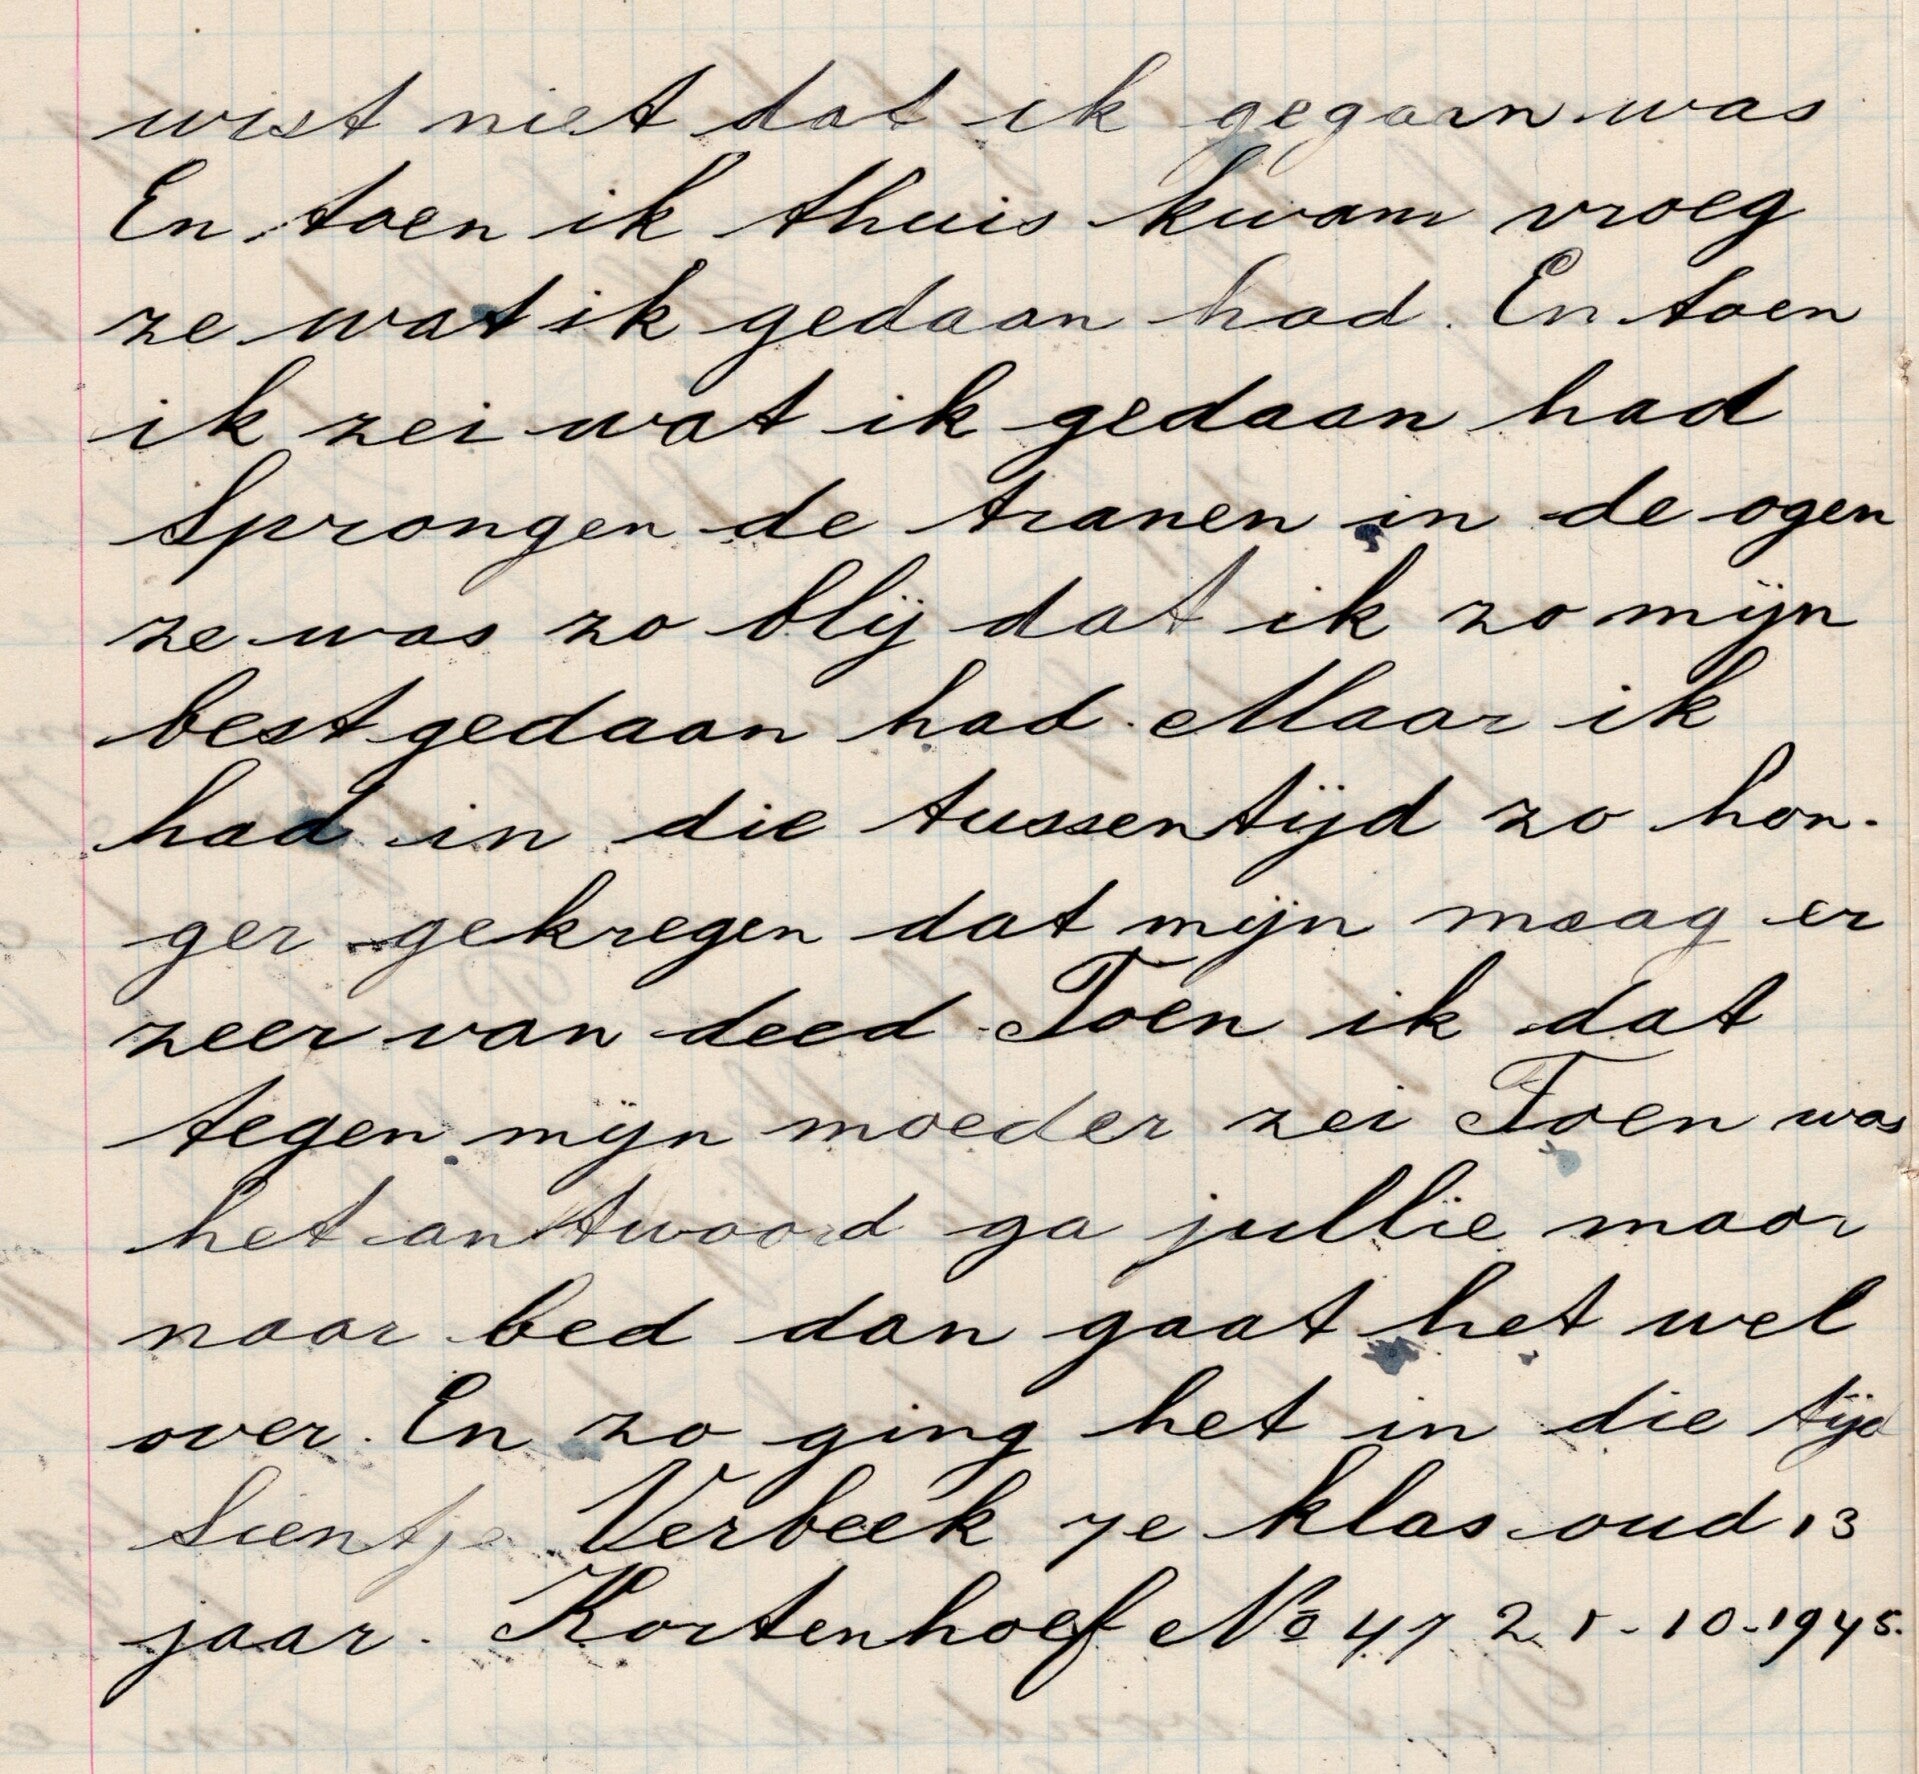 wist niet dat ik gegaan was
En toen ik thuis kwam vroeg
ze wat ik gedaan had. En toen
ik zei wat ik gedaan had
Sprongen de tranen in de ogen
ze was zo blij dat ik zo mijn
best gedaan had. Maar ik
had in die tussentijd zo hon-
ger gekregen dat mijn maag er
zeer van deed. Toen ik dat
tegen mijn moeder zei Toen was
het antwoord ga jullie maar
naar bed dan gaat het wel
over. En zo ging het in die tijd
Sientje Verbeek 7e klas oud 13
jaar. Kortenhoef No 47 25-10-1945.